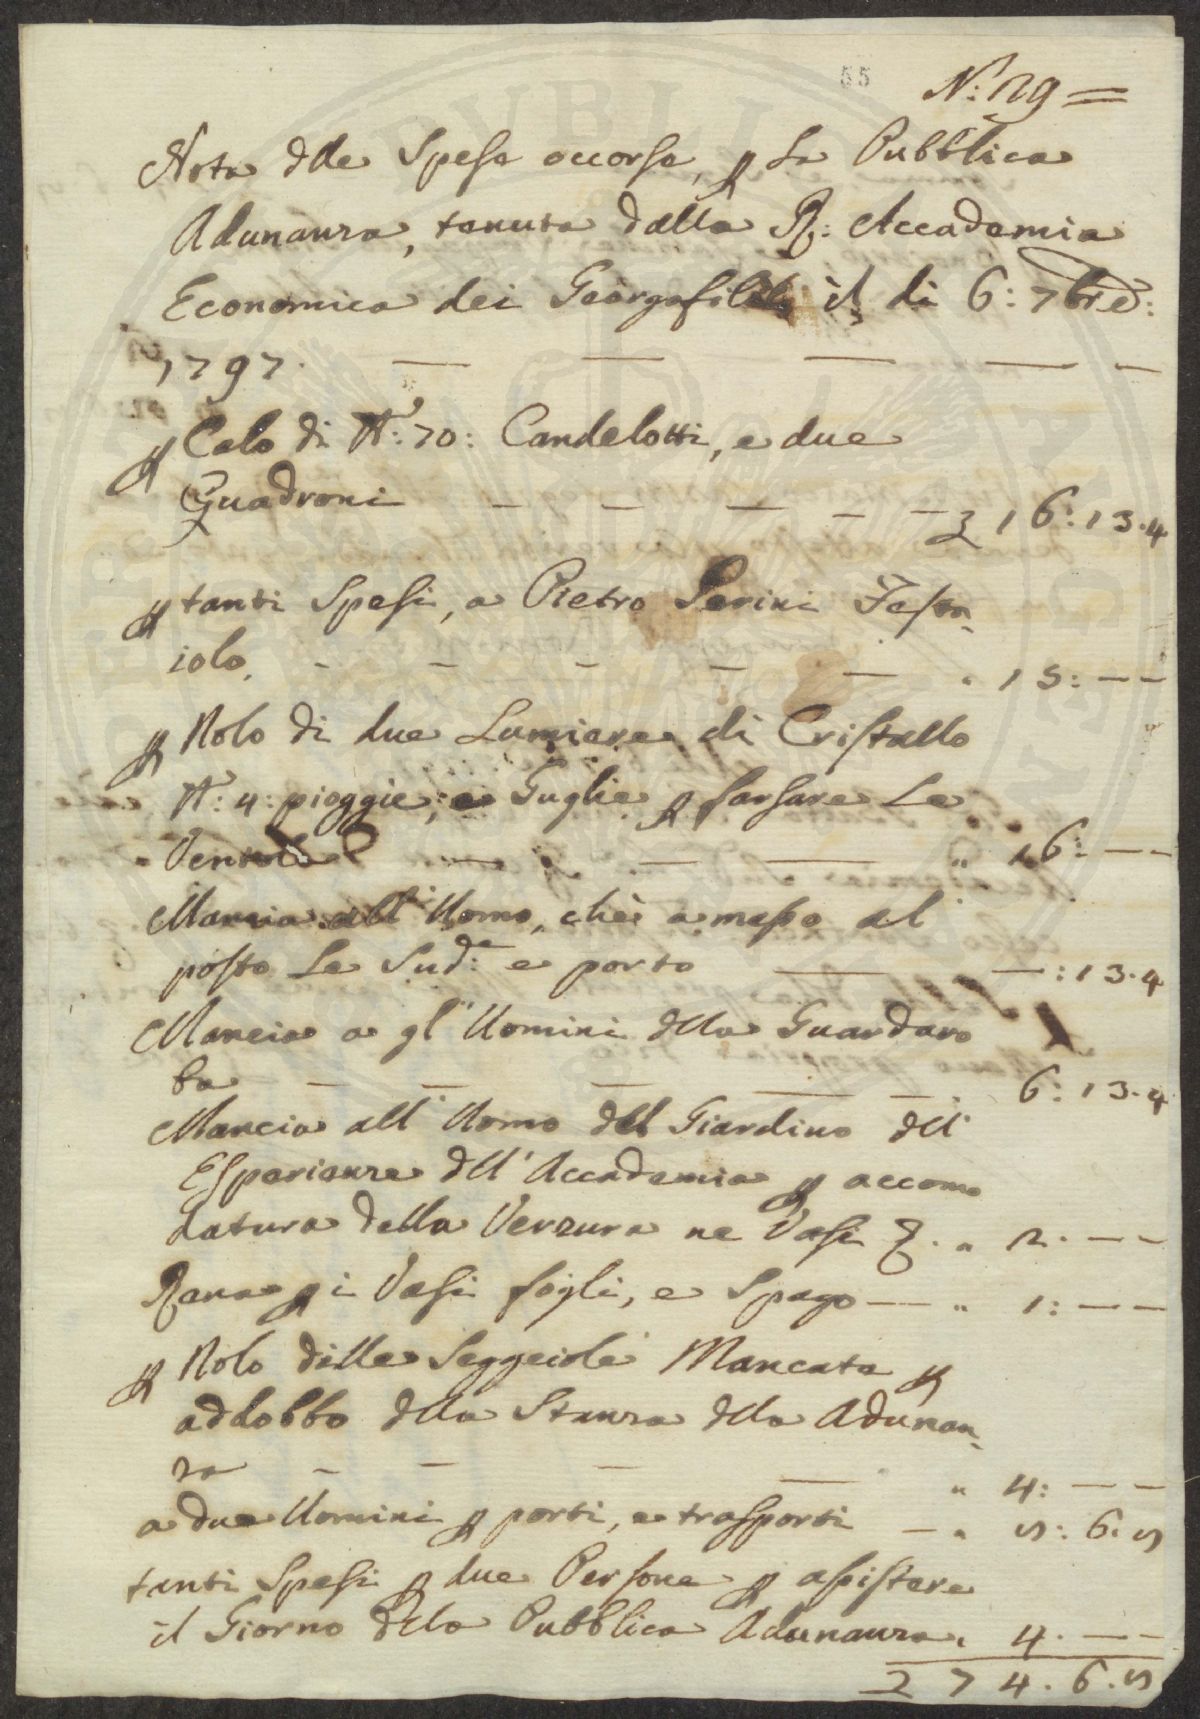 55
N: 29 =
Nota dlle Spese occorse, p La Pubblica
Adunanza, tenuta dalla R: Accademia
Economica dei Georgofili il di 6: 7bre:
1797. — — — — —
p Calo di N: 70: Candelotti, e due
Quadroni — — — — — £ 16: 13. 4
p tanti Spesi, a Pietro Perini Festa-
iolo, — — — — — " 15: — —
p Nolo di due Lumiere di Cristallo
N: 4: pioggie, e Guglie p farsare Le
Ventole — — — " 16: — —
Mancia all' Uomo, che a messo al
posto Le Sud:e e porto — —: 13. 4
Mancia a gl' Uomini dlla Guardaro
ba — — — — — 6: 13. 4
Mancia all' Uomo del Giardino dll'
Esperienze dll' Accademia p accomo
datura della Verzura ne Vasi £. " 2. — —
Rena p i Vasi fogli, e Spago — " 1: — —
p Nolo dille Seggeiole Mancate p
addobbo dlla Stanza dlla Adunan-
za — — — — " 4: — —
a due Uomini p porti, e trasporti — " 5: 6. 5
tanti Spesi p due Persone p assistere
il Giorno dlla Pubblica Adunanza, 4. — —
£ 74. 6. 5